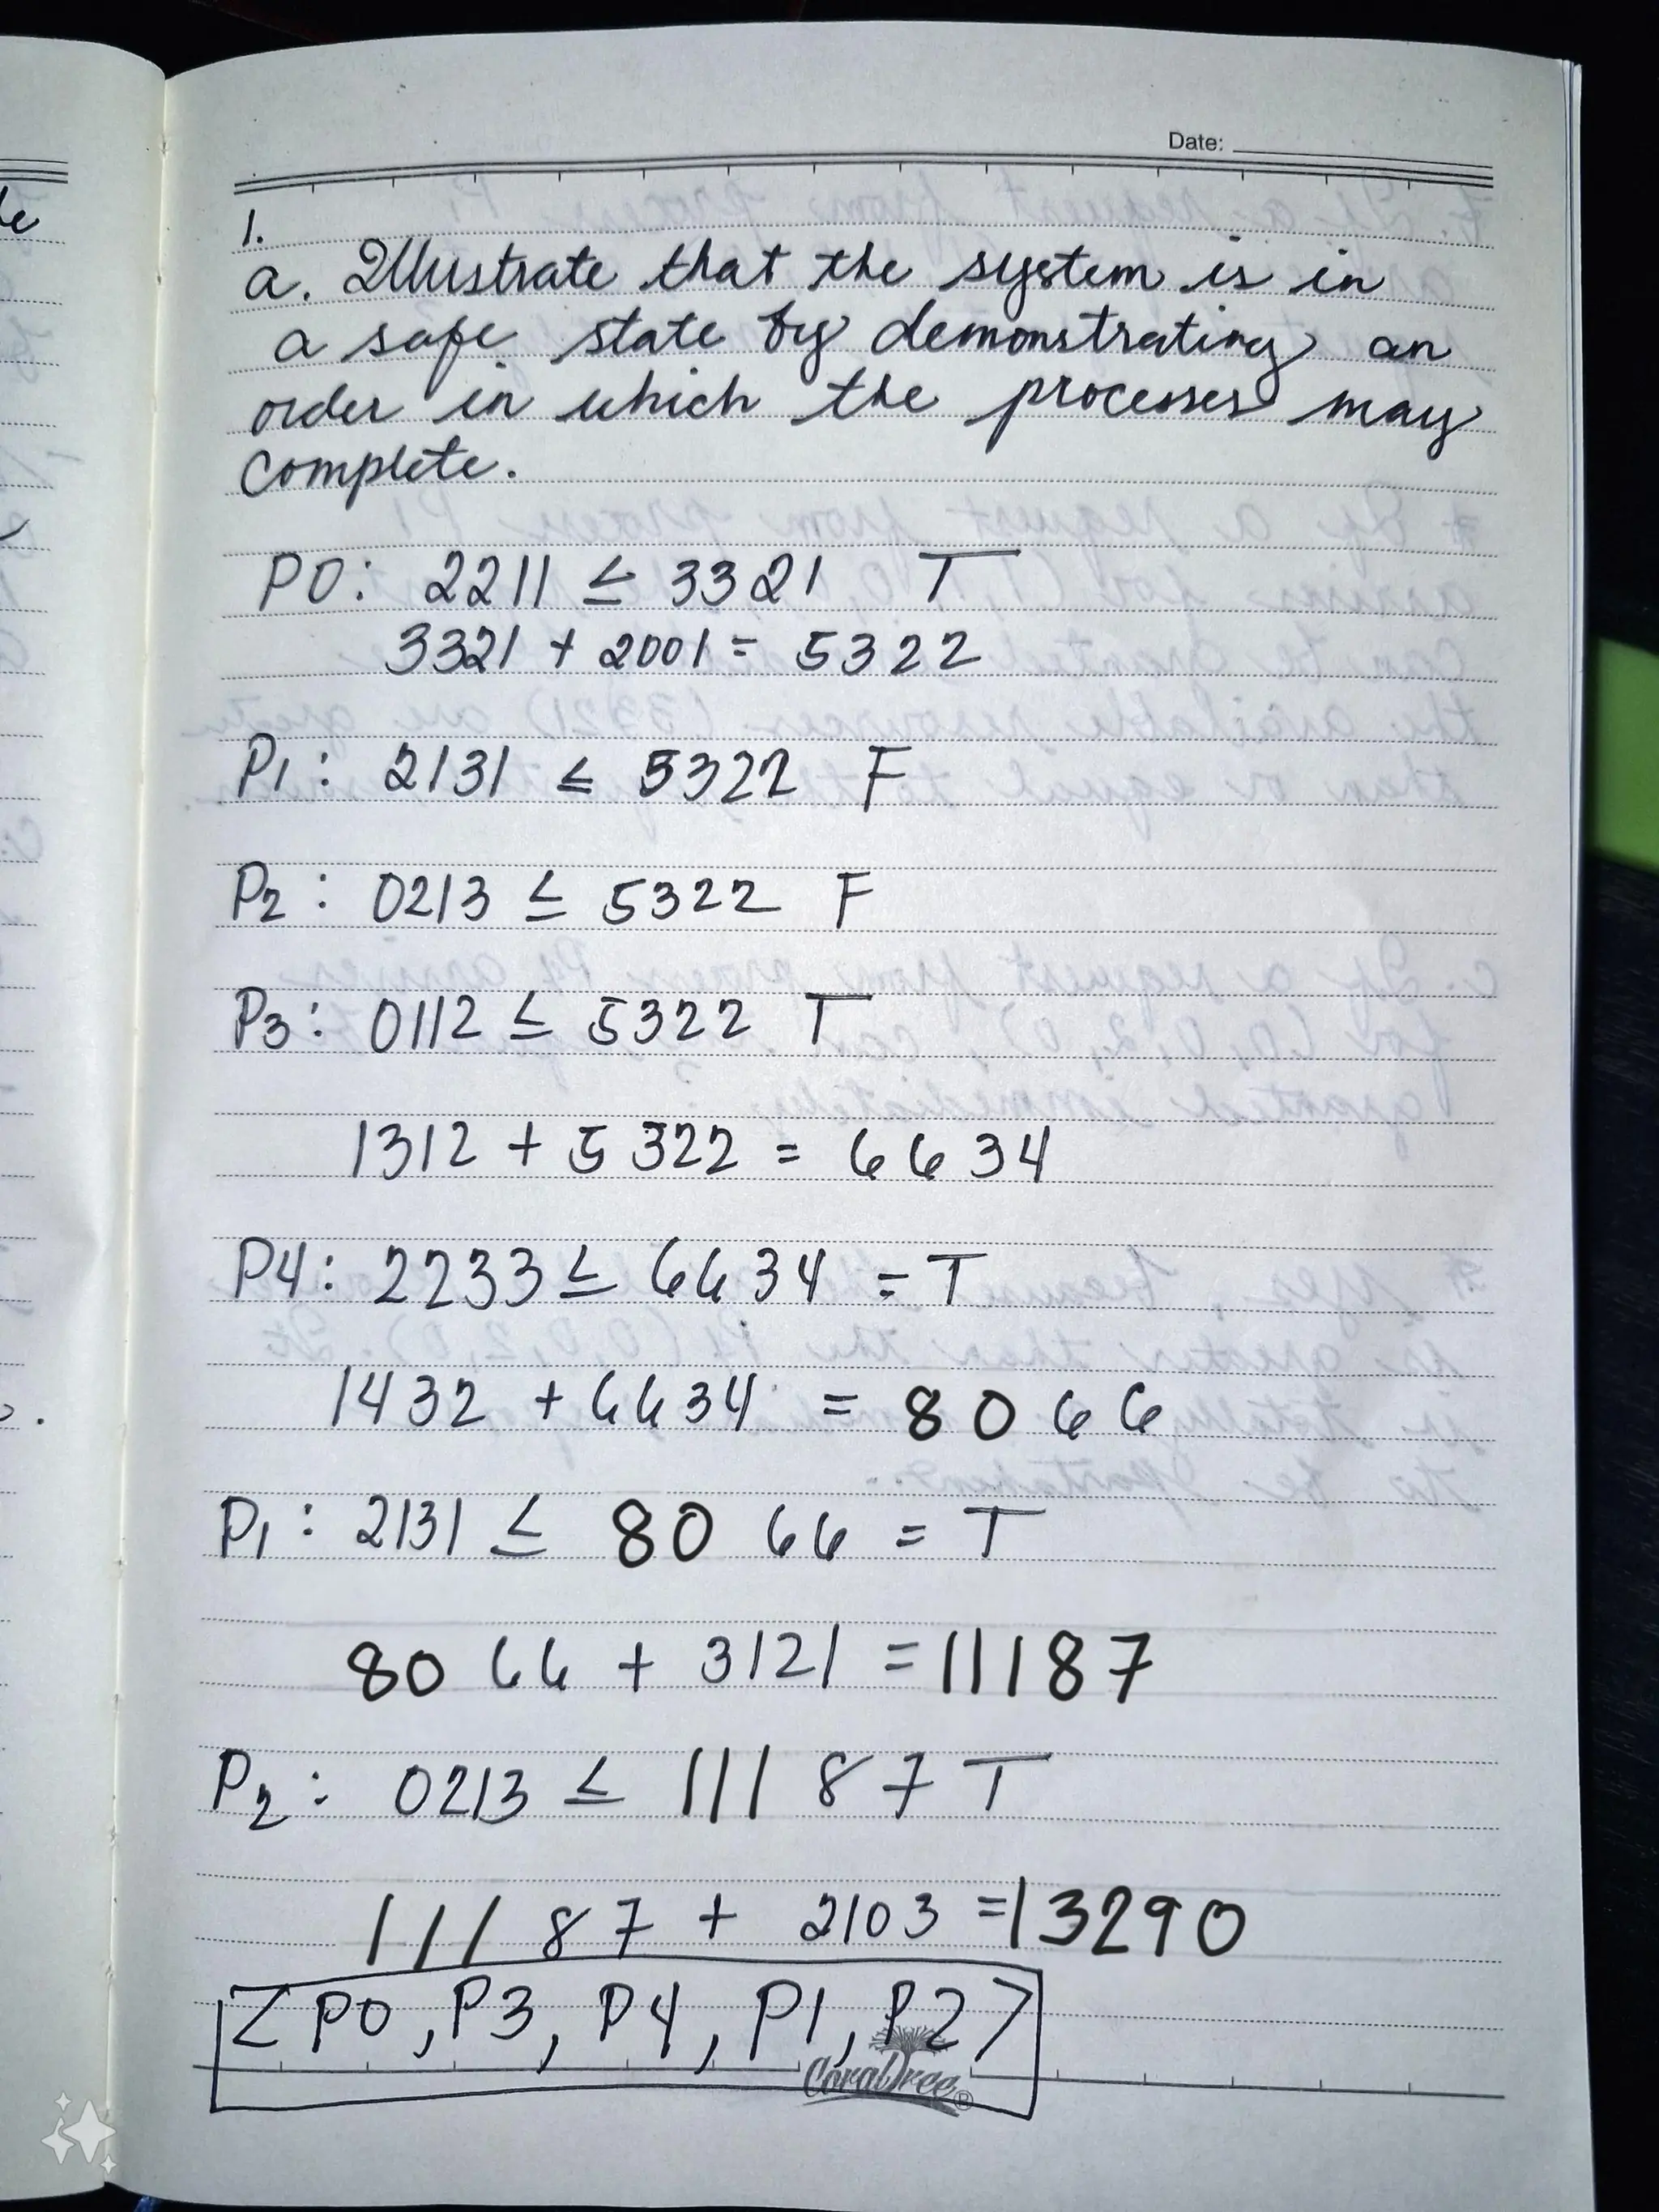 Date:
1.
a. Illustrate that the system is in
a safe state by demonstrating an
order in which the processes may
complete.
P0: 2211 ≤ 3321 T
3321 + 2001 = 5322
P1: 2131 ≤ 5322 F
P2: 0213 ≤ 5322 F
P3: 0112 ≤ 5322 T
1312 + 5322 = 6634
P4: 2233 ≤ 6634 = T
1432 + 6634 = 8066
P1: 2131 ≤ 8066 = T
8066 + 3121 = 11187
P2: 0213 ≤ 11187 T
11187 + 2103 = 13290
<P0, P3, P4, P1, P2>
CoralTree®